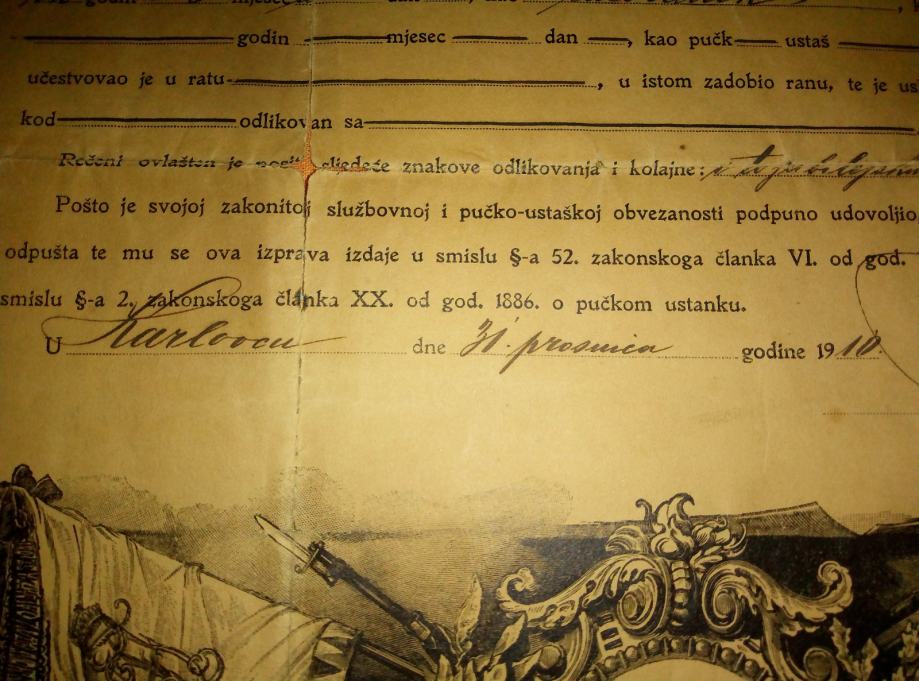 godin mjesec dan , kao pučk ustaš
učestvovao je u ratu , u istom zadobio ranu, te je us
kod odlikovan sa
Rečeni ovlašten je nosit sljedeće znakove odlikovanja i kolajne:
Pošto je svojoj zakonitoj službovnoj i pučko-ustaškoj obvezanosti podpuno udovoljio
odpušta te mu se ova izprava izdaje u smislu §-a 52. zakonskoga članka VI. od god.
smislu §-a 2. zakonskoga članka XX. od god. 1886. o pučkom ustanku.
U Karlovcu dne 31. prosinca godine 1910.